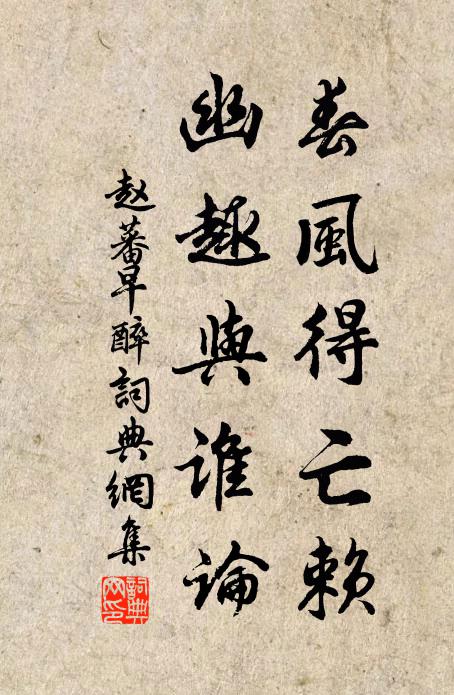 春風得亡賴
幽趣與誰論
赵蕃早醉詞典網集
詞典網印